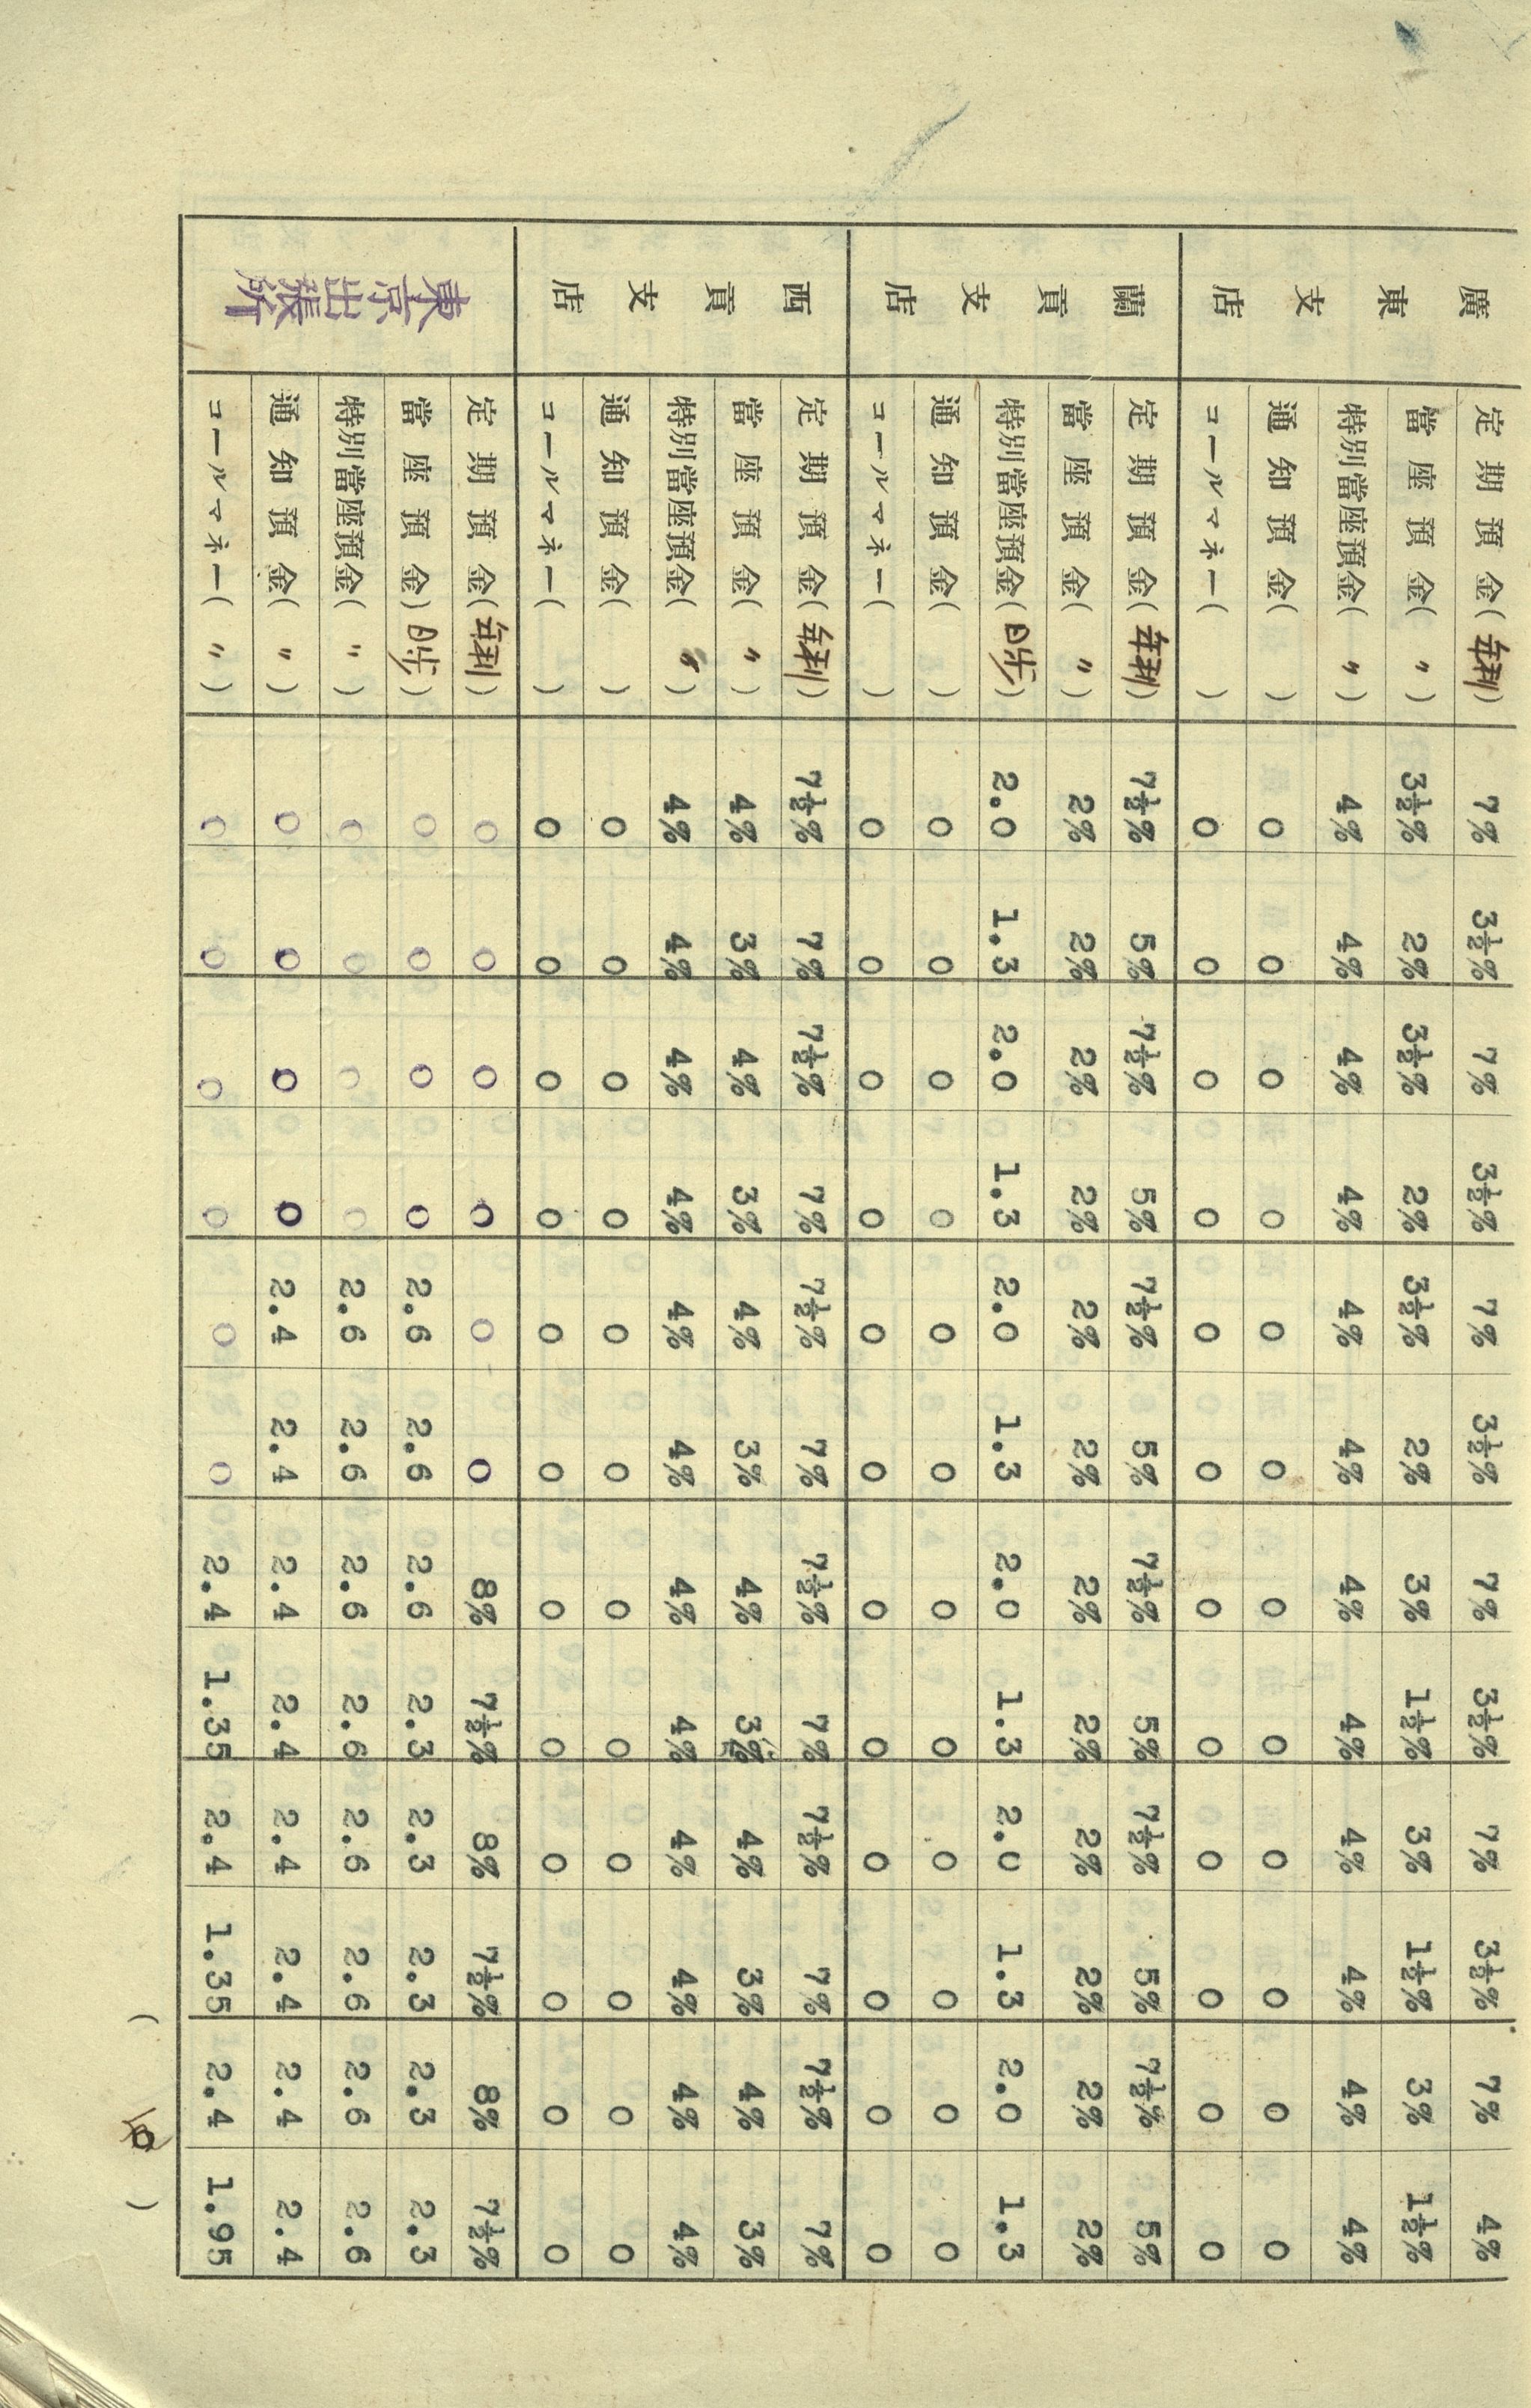 廣東支店
定期預金(年利) 7% 3½% 7% 3½% 7% 3½% 7% 3½% 7% 3½% 7% 4%
當座預金(〃) 3½% 2% 3½% 2% 3½% 2% 3% 1½% 3% 1½% 3% 1½%
特別當座預金(〃) 4% 4% 4% 4% 4% 4% 4% 4% 4% 4% 4% 4%
通知預金( ) 0 0 0 0 0 0 0 0 0 0 0 0
コールマネー( ) 0 0 0 0 0 0 0 0 0 0 0 0
蘭貢支店
定期預金(年利) 7½% 5% 7½% 5% 7½% 5% 7½% 5% 7½% 5% 7½% 5%
當座預金(〃) 2% 2% 2% 2% 2% 2% 2% 2% 2% 2% 2% 2%
特別當座預金(日歩) 2.0 1.3 2.0 1.3 2.0 1.3 2.0 1.3 2.0 1.3 2.0 1.3
通知預金( ) 0 0 0 0 0 0 0 0 0 0 0 0
コールマネー( ) 0 0 0 0 0 0 0 0 0 0 0 0
西貢支店
定期預金(年利) 7½% 7% 7½% 7% 7½% 7% 7½% 7% 7½% 7% 7½% 7%
當座預金(〃) 4% 3% 4% 3% 4% 3% 4% 3% 4% 3% 4% 3%
特別當座預金(〃) 4% 4% 4% 4% 4% 4% 4% 4% 4% 4% 4% 4%
通知預金( ) 0 0 0 0 0 0 0 0 0 0 0 0
コールマネー( ) 0 0 0 0 0 0 0 0 0 0 0 0
東京出張所
定期預金(年利) 0 0 0 0 0 0 8% 7½% 8% 7½% 8% 7½%
當座預金(日歩) 0 0 0 0 2.6 2.6 2.6 2.3 2.3 2.3 2.3 2.3
特別當座預金(〃) 0 0 0 0 2.6 2.6 2.6 2.6 2.6 2.6 2.6 2.6
通知預金(〃) 0 0 0 0 2.4 2.4 2.4 2.4 2.4 2.4 2.4 2.4
コールマネー(〃) 0 0 0 0 0 0 2.4 1.35 2.4 1.35 2.4 1.95